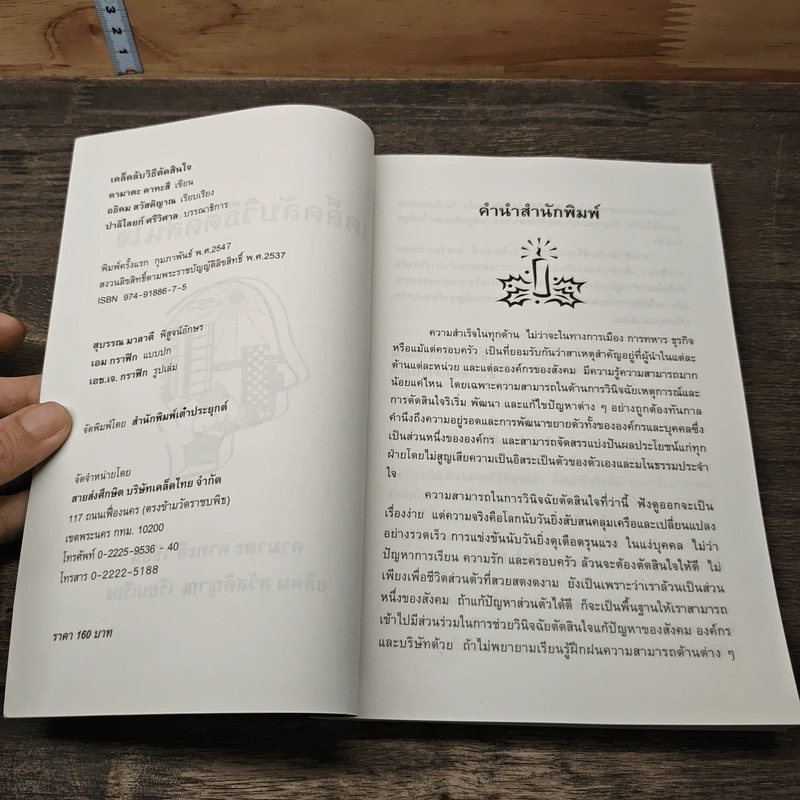 3
2
1
เคล็ดลับวิธีตัดสินใจ
คามาตะ คาทะสึ เขียน
อธิคม สวัสดิญาณ เรียบเรียง
ปาลิไลยก์ ศรีวิศาล บรรณาธิการ
พิมพ์ครั้งแรก กุมภาพันธ์ พ.ศ.2547
สงวนลิขสิทธิ์ตามพระราชบัญญัติลิขสิทธิ์ พ.ศ.2537
ISBN 974-91886-7-5
สุบรรณ มาลาตี พิสูจน์อักษร
เอม กราฟิก แบบปก
เอช.เจ. กราฟิก รูปเล่ม
จัดพิมพ์โดย สำนักพิมพ์เต๋าประยุกต์
จัดจำหน่ายโดย
สายส่งศึกษิต บริษัทเคล็ดไทย จำกัด
117 ถนนเฟื่องนคร (ตรงข้ามวัดราชบพิธ)
เขตพระนคร กทม. 10200
โทรศัพท์ 0-2225-9536 - 40
โทรสาร 0-2222-5188
ราคา 160 บาท
คำนำสำนักพิมพ์
ความสำเร็จในทุกด้าน ไม่ว่าจะในทางการเมือง การทหาร ธุรกิจ
หรือแม้แต่ครอบครัว เป็นที่ยอมรับกันว่าสาเหตุสำคัญอยู่ที่ผู้นำในแต่ละ
ด้านแต่ละหน่วย และแต่ละองค์กรของสังคม มีความรู้ความสามารถมาก
น้อยแค่ไหน โดยเฉพาะความสามารถในด้านการวินิจฉัยเหตุการณ์และ
การตัดสินใจริเริ่ม พัฒนา และแก้ไขปัญหาต่าง ๆ อย่างถูกต้องทันกาล
คำนึงถึงความอยู่รอดและการพัฒนาขยายตัวทั้งขององค์กรและบุคคลซึ่ง
เป็นส่วนหนึ่งขององค์กร และสามารถจัดสรรแบ่งปันผลประโยชน์แก่ทุก
ฝ่ายโดยไม่สูญเสียความเป็นอิสระเป็นตัวของตัวเองและมโนธรรมประจำ
ใจ
ความสามารถในการวินิจฉัยตัดสินใจที่ว่านี้ ฟังดูออกจะเป็น
เรื่องง่าย แต่ความจริงคือโลกนับวันยิ่งสับสนคลุมเครือและเปลี่ยนแปลง
อย่างรวดเร็ว การแข่งขันนับวันยิ่งดุเดือดรุนแรง ในแง่บุคคล ไม่ว่า
ปัญหาการเรียน ความรัก และครอบครัว ล้วนจะต้องตัดสินใจให้ดี ไม่
เพียงเพื่อชีวิตส่วนตัวที่สวยสดงดงาม ยังเป็นเพราะว่าเราล้วนเป็นส่วน
หนึ่งของสังคม ถ้าแก้ปัญหาส่วนตัวได้ดี ก็จะเป็นพื้นฐานให้เราสามารถ
เข้าไปมีส่วนร่วมในการช่วยวินิจฉัยตัดสินใจแก้ปัญหาของสังคม องค์กร
และบริษัทด้วย ถ้าไม่พยายามเรียนรู้ฝึกฝนความสามารถด้านต่าง ๆ